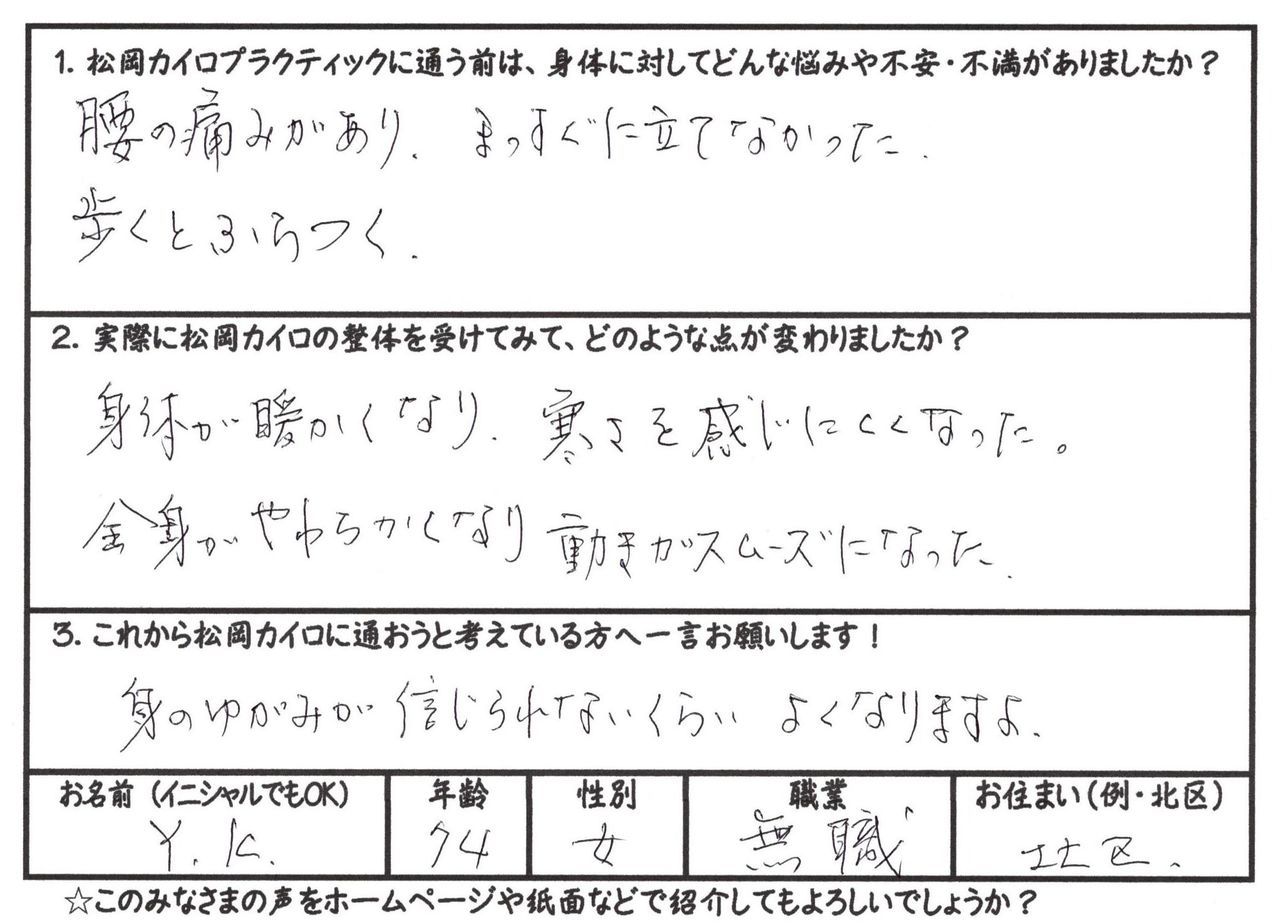 1. 松岡カイロプラクティックに通う前は、身体に対してどんな悩みや不安・不満がありましたか？
腰の痛みがあり. まっすぐに立てなかった.
歩くとふらつく.
2. 実際に松岡カイロの整体を受けてみて、どのような点が変わりましたか？
身体が暖かくなり. 寒さを感じにくくなった。
全身がやわらかくなり動きがスムーズになった.
3. これから松岡カイロに通おうと考えている方へ一言お願いします！
身のゆがみが信じられないくらい よくなりますよ.
お名前（イニシャルでもOK） 年齢 性別 職業 お住まい（例・北区）
Y. K. 74 女 無職 北区.
☆このみなさまの声をホームページや紙面などで紹介してもよろしいでしょうか？